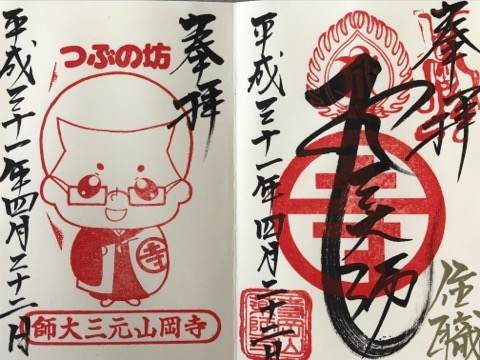 奉拝
つぶの坊
寺
寺岡山元三大師
平成三十一年四月二十二日
奉拝
元三大師
寺
住職
平成三十一年四月二十二日